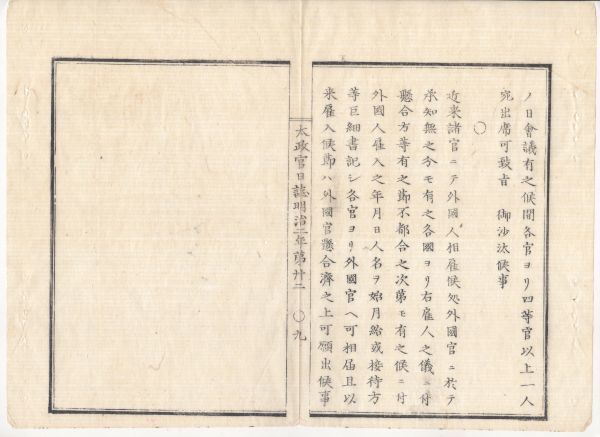 ノ日會議有之候間各官ヨリ四等官以上一人
宛出席可致旨 御沙汰候事
○
近来諸官ニテ外國人相雇候処外國官ニ於テ
承知無之分モ有之各國ヨリ右雇人之儀ニ付
懸合方等有之節不都合之次第モ有之候ニ付
外國人雇入之年月日人名ヲ始月給或接待方
等巨細書記シ各官ヨリ外國官ヘ可相届且以
来雇入候節ハ外國官懸合濟之上可願出候事
太政官日誌明治二年第廿二 ○九